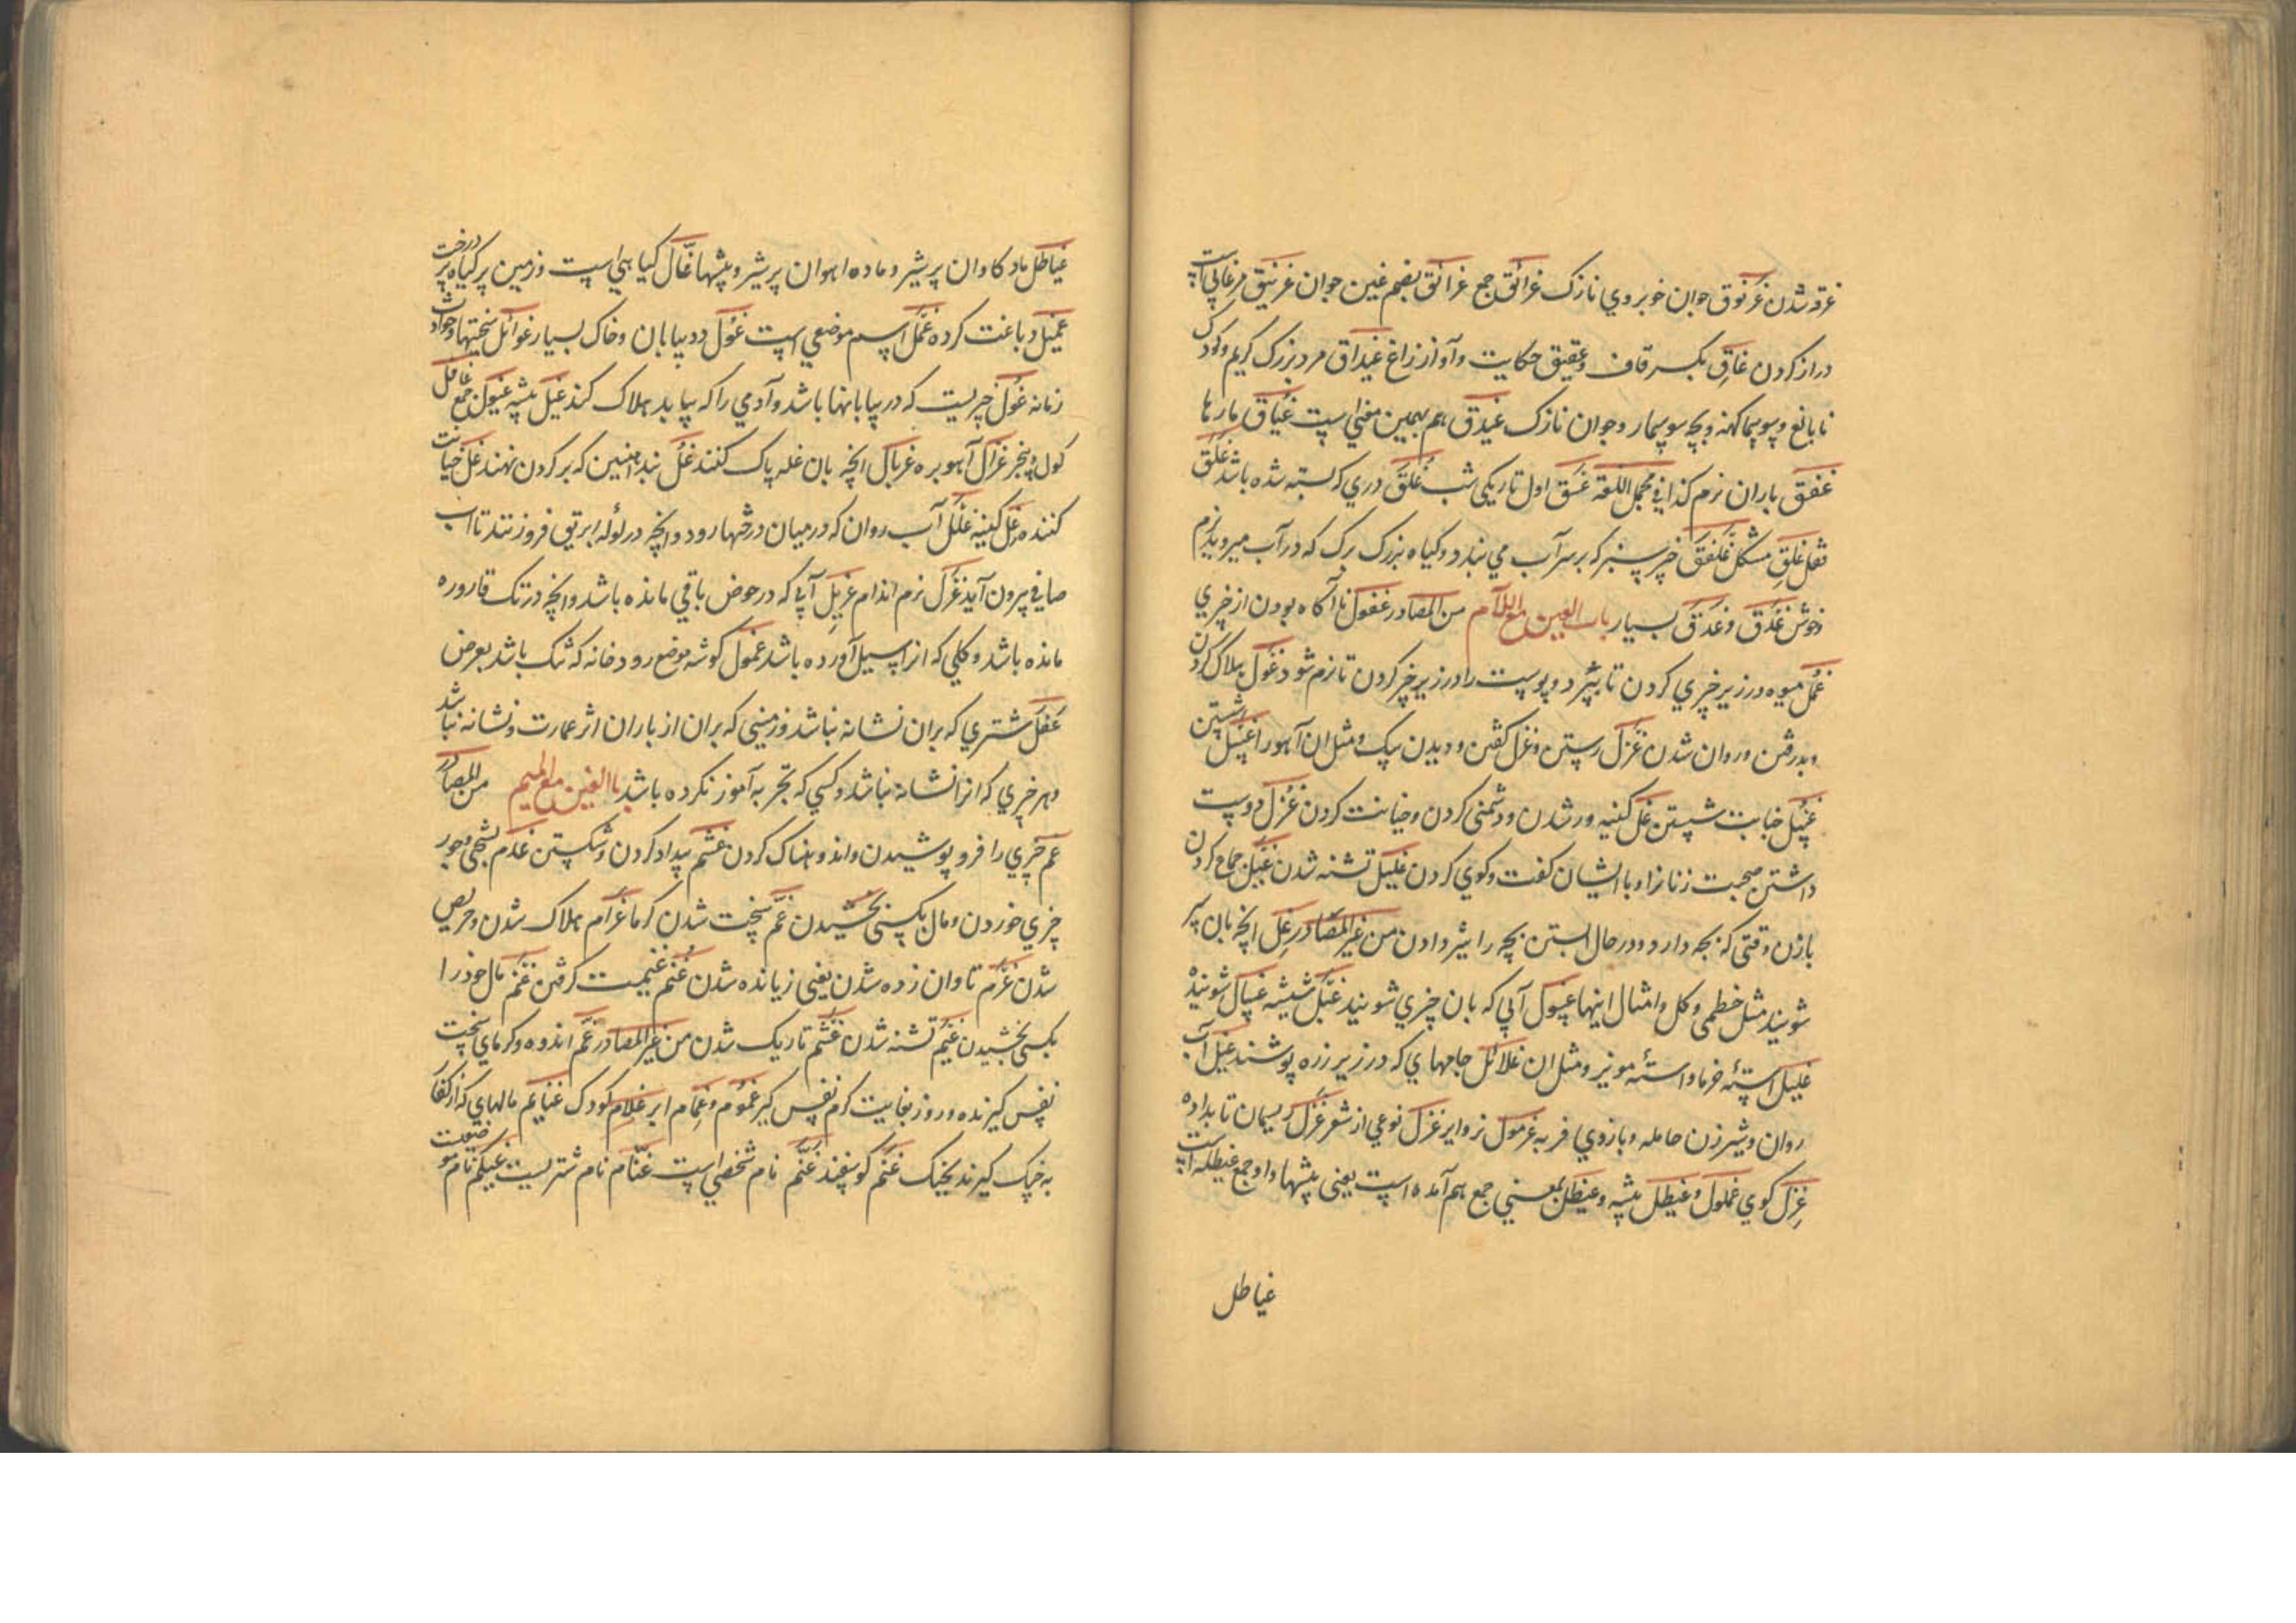 غرقه شدن غُرنوق جوان خوبروي نازک غرائق جمع غرائق بضم غين جوان غرنيق مرغابي است
دراز کردن غاقِ بکسر قاف وغقيق حکايت وآواز زاغ غيداق مرد بزرک کريم وکودک
نابالغ وسوسمار کهنه وبچه سوسمار وجوان نازک غيدق هم بهمين معني است غياق مارها
غفق باران نرم کذا في مجمل اللغة غسق اول تاريکي شب غلق دري که بسته شده باشد غلق
قفل غلق مشکل غلفق چيز سبز که بر سر آب مي بندد وکياه بزرک برک که در آب ميرويد نرم
وخوش غدق وغدق بسيار باب الغين مع اللام من المصادر غفول ناآکاه بودن از چيزي
غمل ميوه در زير چيزي کردن تا بپزد وپوست را در زير چيز کردن تا نرم شود غول هلاک کردن
وبدر رفتن وروان شدن غزل رستن وغزل کفتن وديدن سک ومثل ان آهو را غسل شستن
غسل جنابت شستن غل کينه ور شدن ودشمني کردن وخيانت کردن غزل دوست
داشتن صحبت زنانرا وبا ايشان کفت وکوي کردن غليل تشنه شدن غيل جماع کردن
با زن وقتي که بچه دارد ودر حال ابستن بچه را شير دادن من غير المصادر غسل انچه بان سر
شويند مثل خطمي وکل وامثال اينها غسول آبي که بان چيزي شويند غسال شوينده
غليل استۀ خرما واستۀ مويز ومثل ان غلائل جامهاي که در زير زره پوشند غيل آب
روان وشير زن حامله وبازوي فربه غرمول نر واير غزل نوعي از شعر غزل ريسمان تا بداده
غزل کوي غملول وغيطل بيشه وغيطل بمعني جمع هم آمده است يعني بيشها واو جمع غيطله است
غياطل
غياطل ماده کاوان پر شير وماده اهوان پر شير وبيشها غال کياهي است وزمين پر کياه پر درخت
غميل دباغت کرده غمل اسم موضعي است غول دد بيابان وخاک بسيار غوائل سختيها وحوادث
زمانه غول چيزيست که در بيابانها باشد وآدمي را که بيابد هلاک کند غيل بيشه غيول جمع غافل
کول وبيخبر غزال آهو بره غربال انچه بان غله پاک کنند غل بند آهنين که بر کردن نهند غل خيانت
کننده غل کينه غلل آب روان که در ميان درختها رود وانچه در لوله ابريق فرو زنند تا آب
صافي بيرون آيد غزل نرم اندام غربل آبي که در حوض باقي مانده باشد وانچه در تک قاروره
مانده باشد وکلي که انرا سيل آورده باشد غمول کوشه موضع رودخانه که تنک باشد بعرض
غفل شتري که بران نشانه نباشد وزميني که بران از باران اثر عمارت ونشانه نباشد
وهر چيزي که انرا نشانه نباشد وکسي که تجربه آموز نکرده باشد باب الغين مع الميم من المصادر
غم چيزي را فرو پوشيدن واندوهناک کردن غشم بيداد کردن وشکستن غذم بسختي وجور
چيزي خوردن ومال بکسي بخشيدن غم سخت شدن کرما غرام هلاک شدن وحريص
شدن غرم تاوان زده شدن يعني زيانده شدن غنم غنيمت کرفتن غثم مال خود را
بکسي بخشيدن غيم تشنه شدن غشم تاريک شدن من غير المصادر غم اندوه وکرماي سخت
نفس کيرنده وروز بغايت کرم نفس کير غموم وغمام ابر غلام کودک غنايم مالهاي که از کفار
به جنک کيرند غنم کوسفند غنم نام شخصي است غنام نام شتريست غيلم نام موضعيست